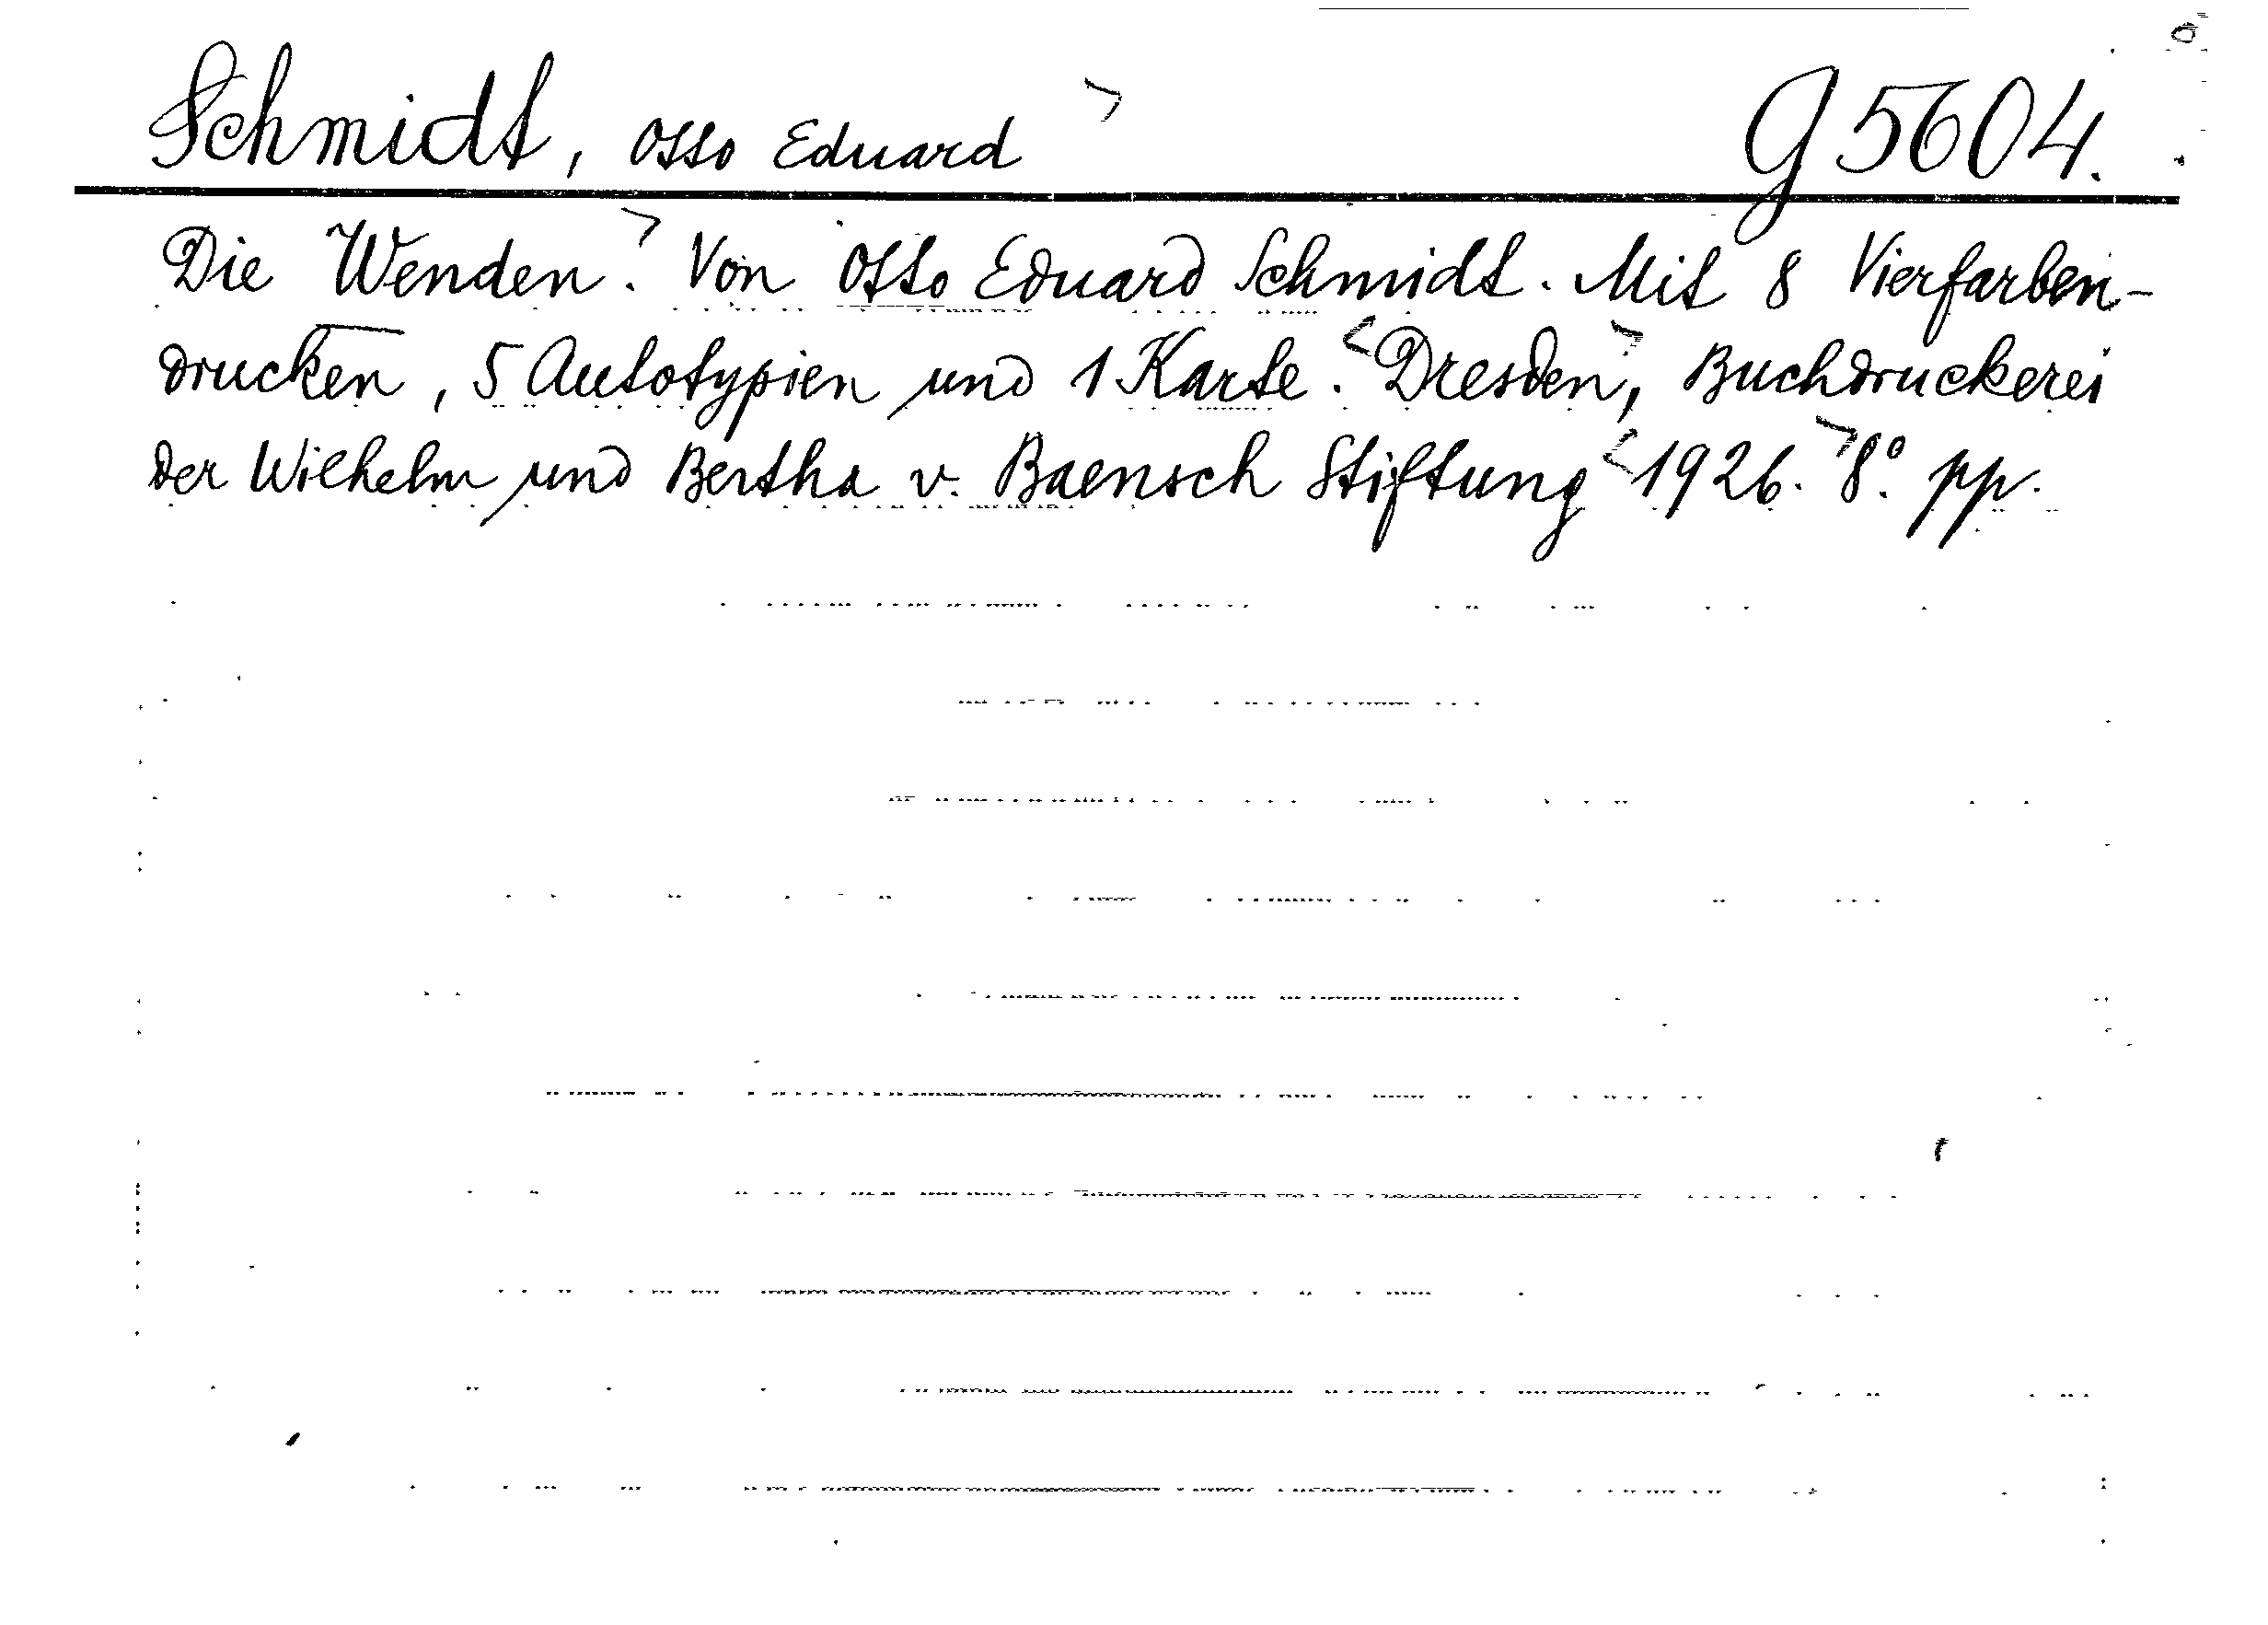 Schmidt, Otto Eduard G 5604.
Die Wenden. Von Otto Eduard Schmidt. Mit 8 Vierfarben-
drucken, 5 Autotypien und 1 Karte. Dresden, Buchdruckerei
der Wilhelm und Bertha v. Baensch Stiftung 1926. 8°. pp.